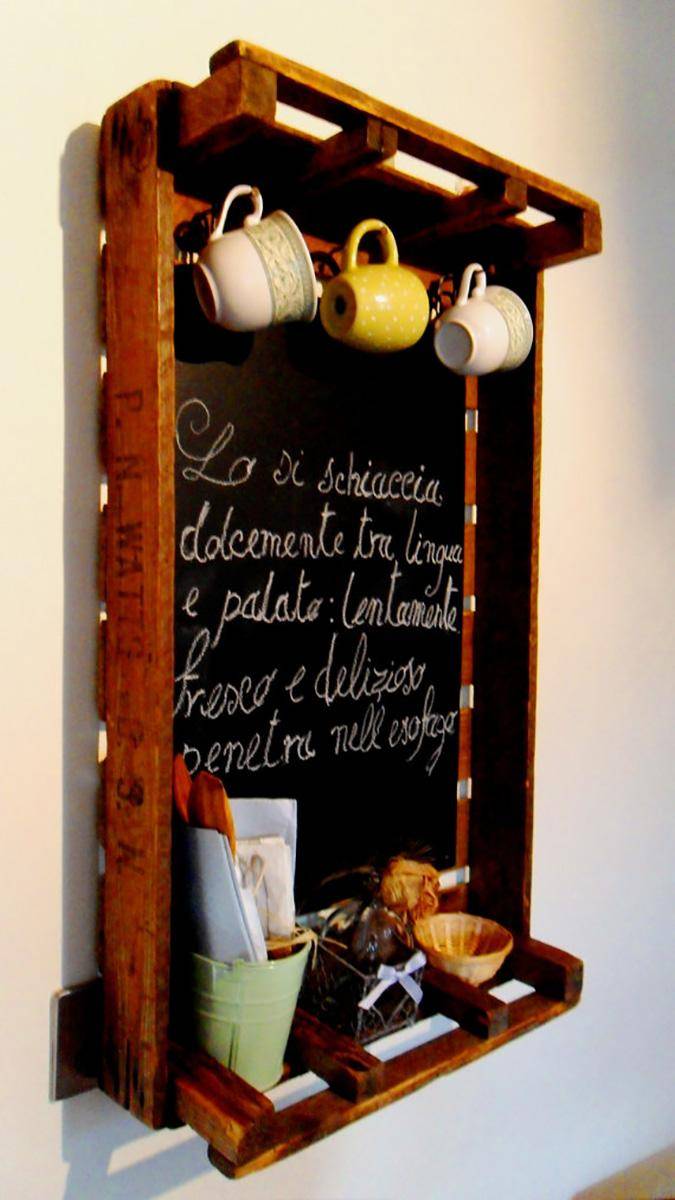 Lo si schiaccia
dolcemente tra lingua
e palato: lentamente
fresco e delizioso
penetra nell'esofago
P. N. WAT